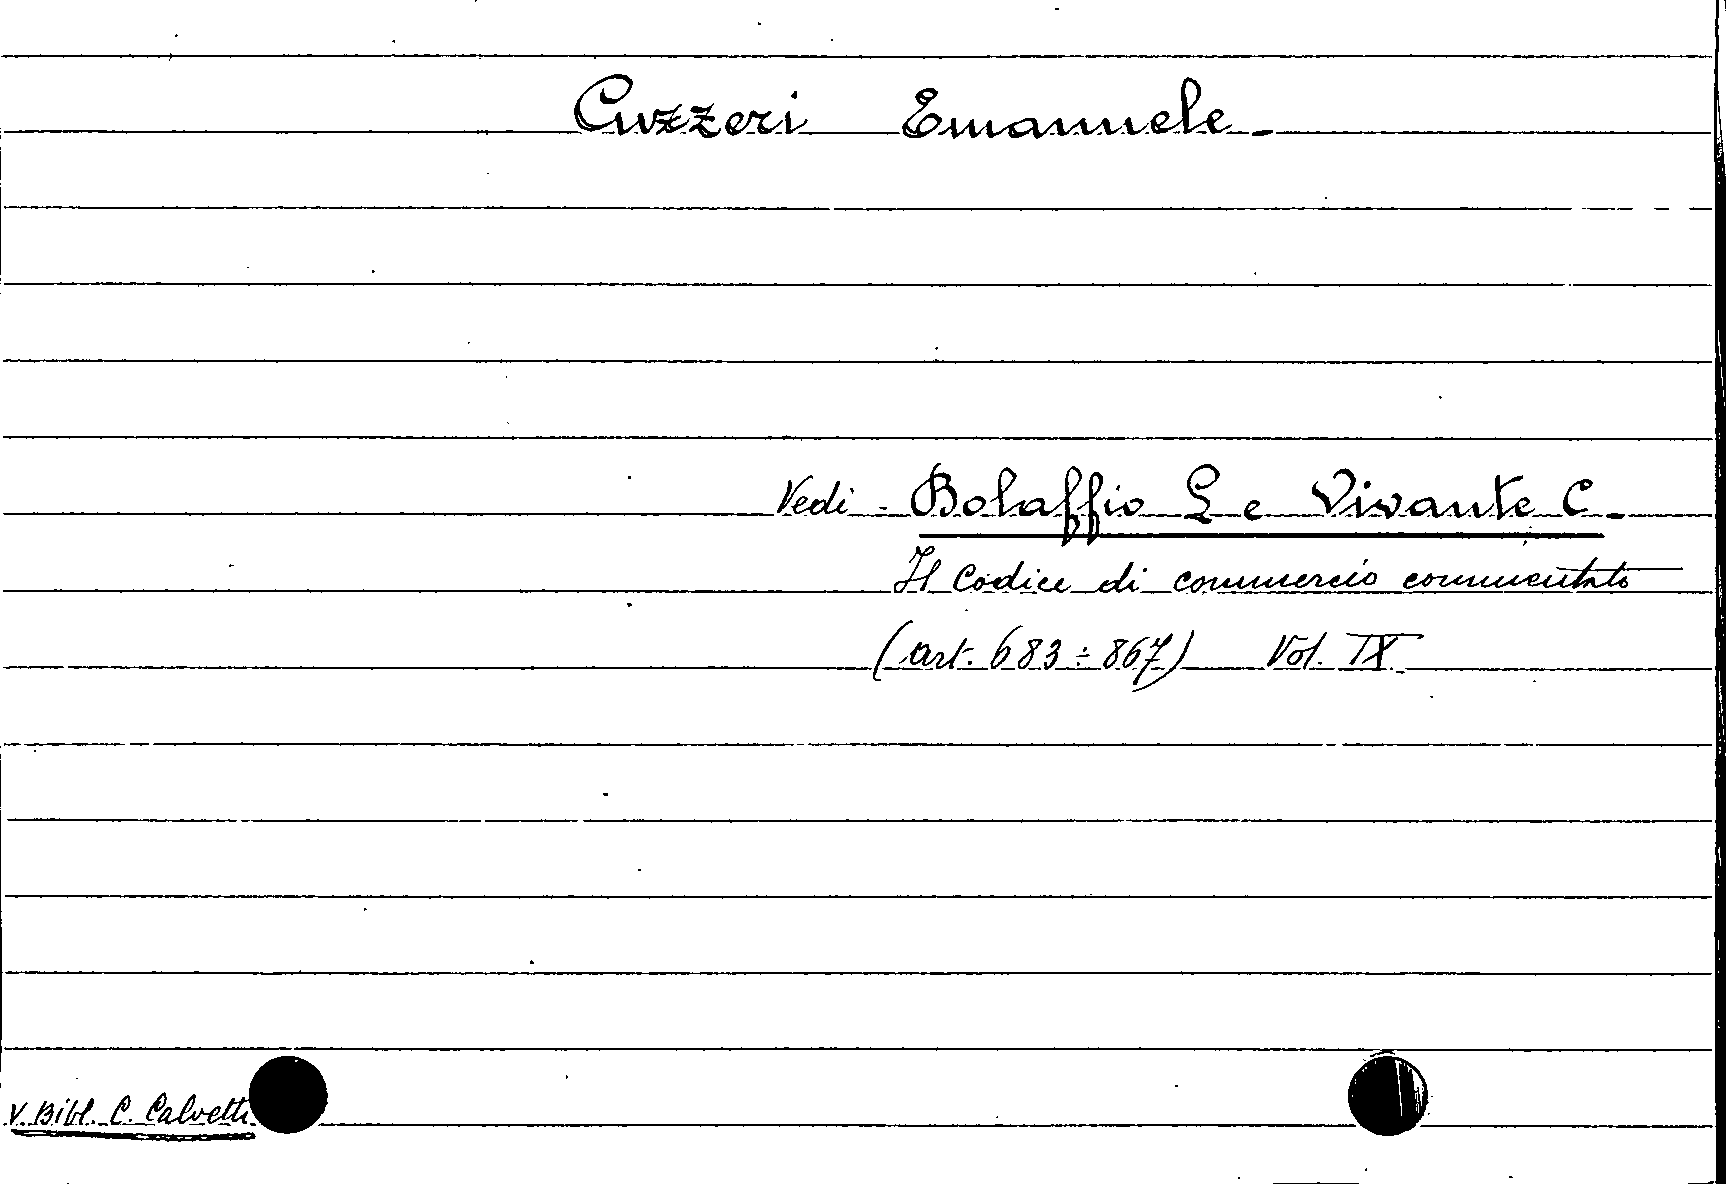 Cuzzeri Emanuele -
Vedi - Bolaffio L e Vivante C. -
Il Codice di commercio commentato
(art. 683 ÷ 867) Vol. IX
V. Bibl. C. Calvetti